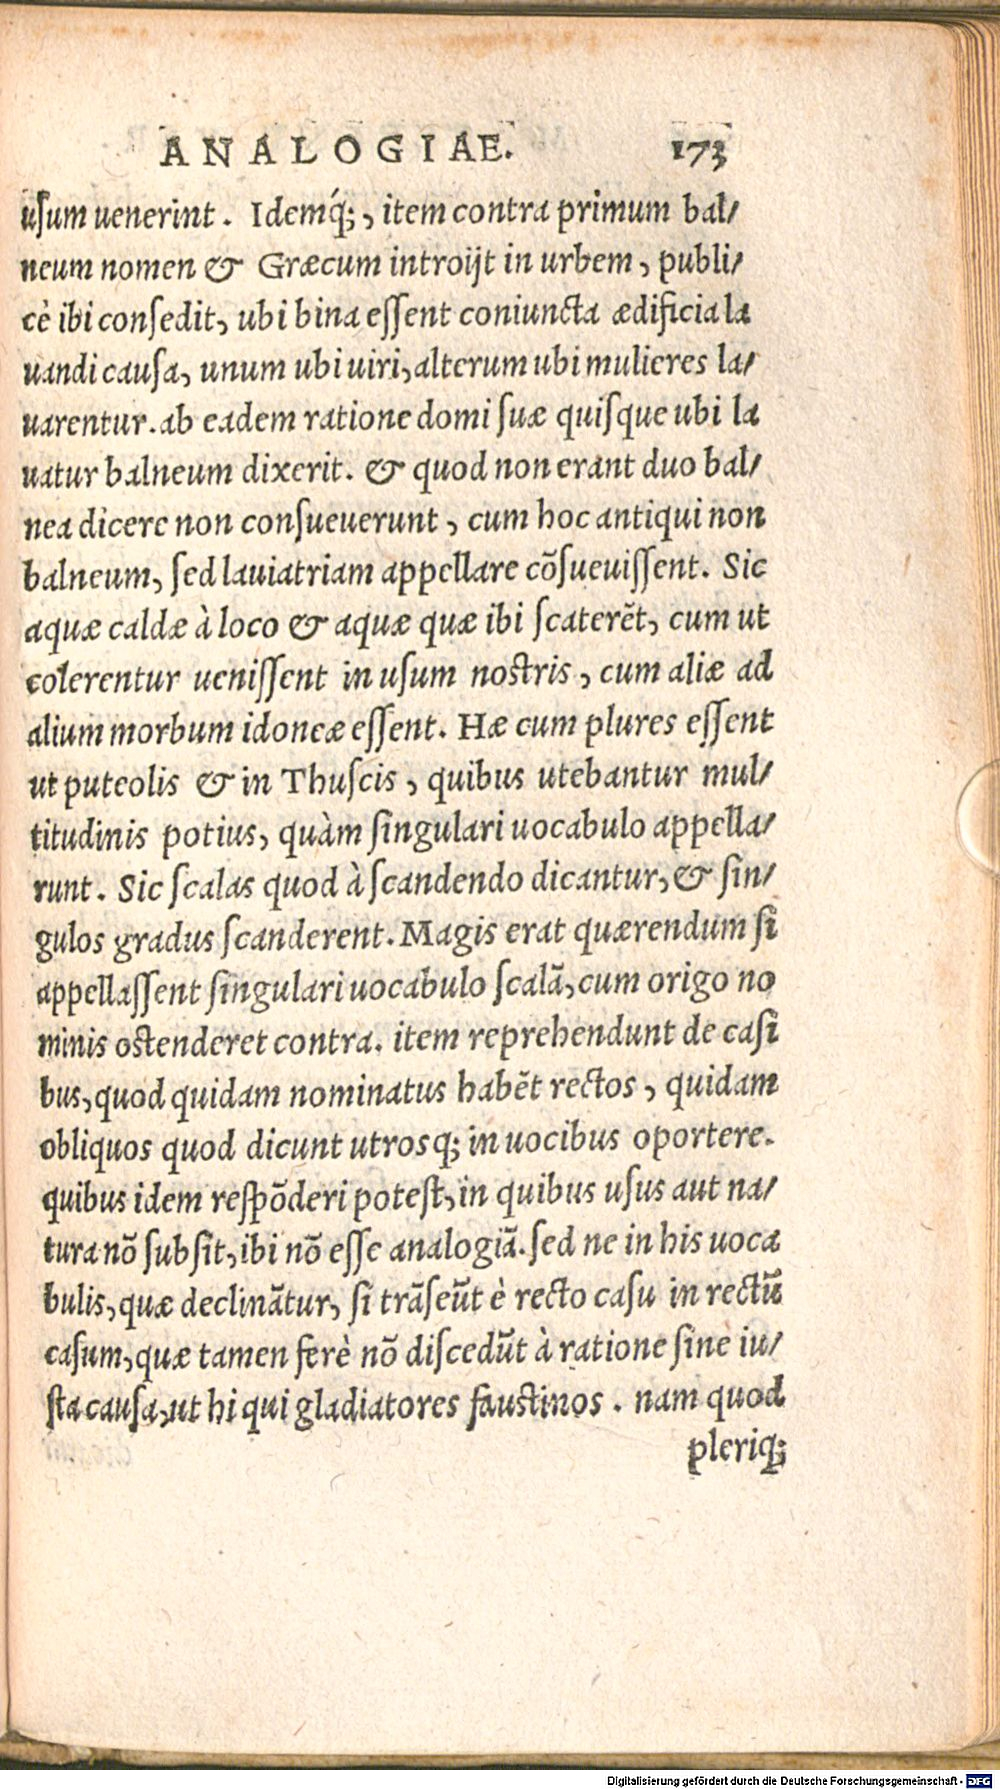 ANALOGIAE. 173
uſum uenerint. Idemq́;, item contra primum bal/
neum nomen & Græcum introijt in urbem, publi/
cè ibi conſedit, ubi bina eſſent coniuncta ædificia la
uandi cauſa, unum ubi uiri, alterum ubi mulieres la/
uarentur. ab eadem ratione domi ſuæ quiſque ubi la
uatur balneum dixerit. & quod non erant duo bal/
nea dicere non conſueuerunt, cum hoc antiqui non
balneum, ſed lauiatriam appellare cõſueuiſſent. Sic
aquæ caldæ à loco & aquæ quæ ibi ſcaterẽt, cum ut
colerentur ueniſſent in uſum noſtris, cum aliæ ad
alium morbum idoneæ eſſent. Hæ cum plures eſſent
ut puteolis & in Thuſcis, quibus utebantur mul/
titudinis potius, quàm ſingulari uocabulo appella/
runt. Sic ſcalas quod à ſcandendo dicantur, & ſin/
gulos gradus ſcanderent. Magis erat quærendum ſi
appellaſſent ſingulari uocabulo ſcalã, cum origo no
minis oſtenderet contra. item reprehendunt de caſi
bus, quod quidam nominatus habẽt rectos, quidam
obliquos quod dicunt utrosq; in uocibus oportere.
quibus idem reſpõderi poteſt, in quibus uſus aut na/
tura nõ ſubſit, ibi nõ eſſe analogiã. ſed ne in his uoca
bulis, quæ declinãtur, ſi trãſeũt è recto caſu in rectũ
caſum, quæ tamen ferè nõ diſcedũt à ratione ſine iu/
ſta cauſa, ut hi qui gladiatores fauſtinos. nam quod
pleriq;
Digitalisierung gefördert durch die Deutsche Forschungsgemeinschaft - DFG